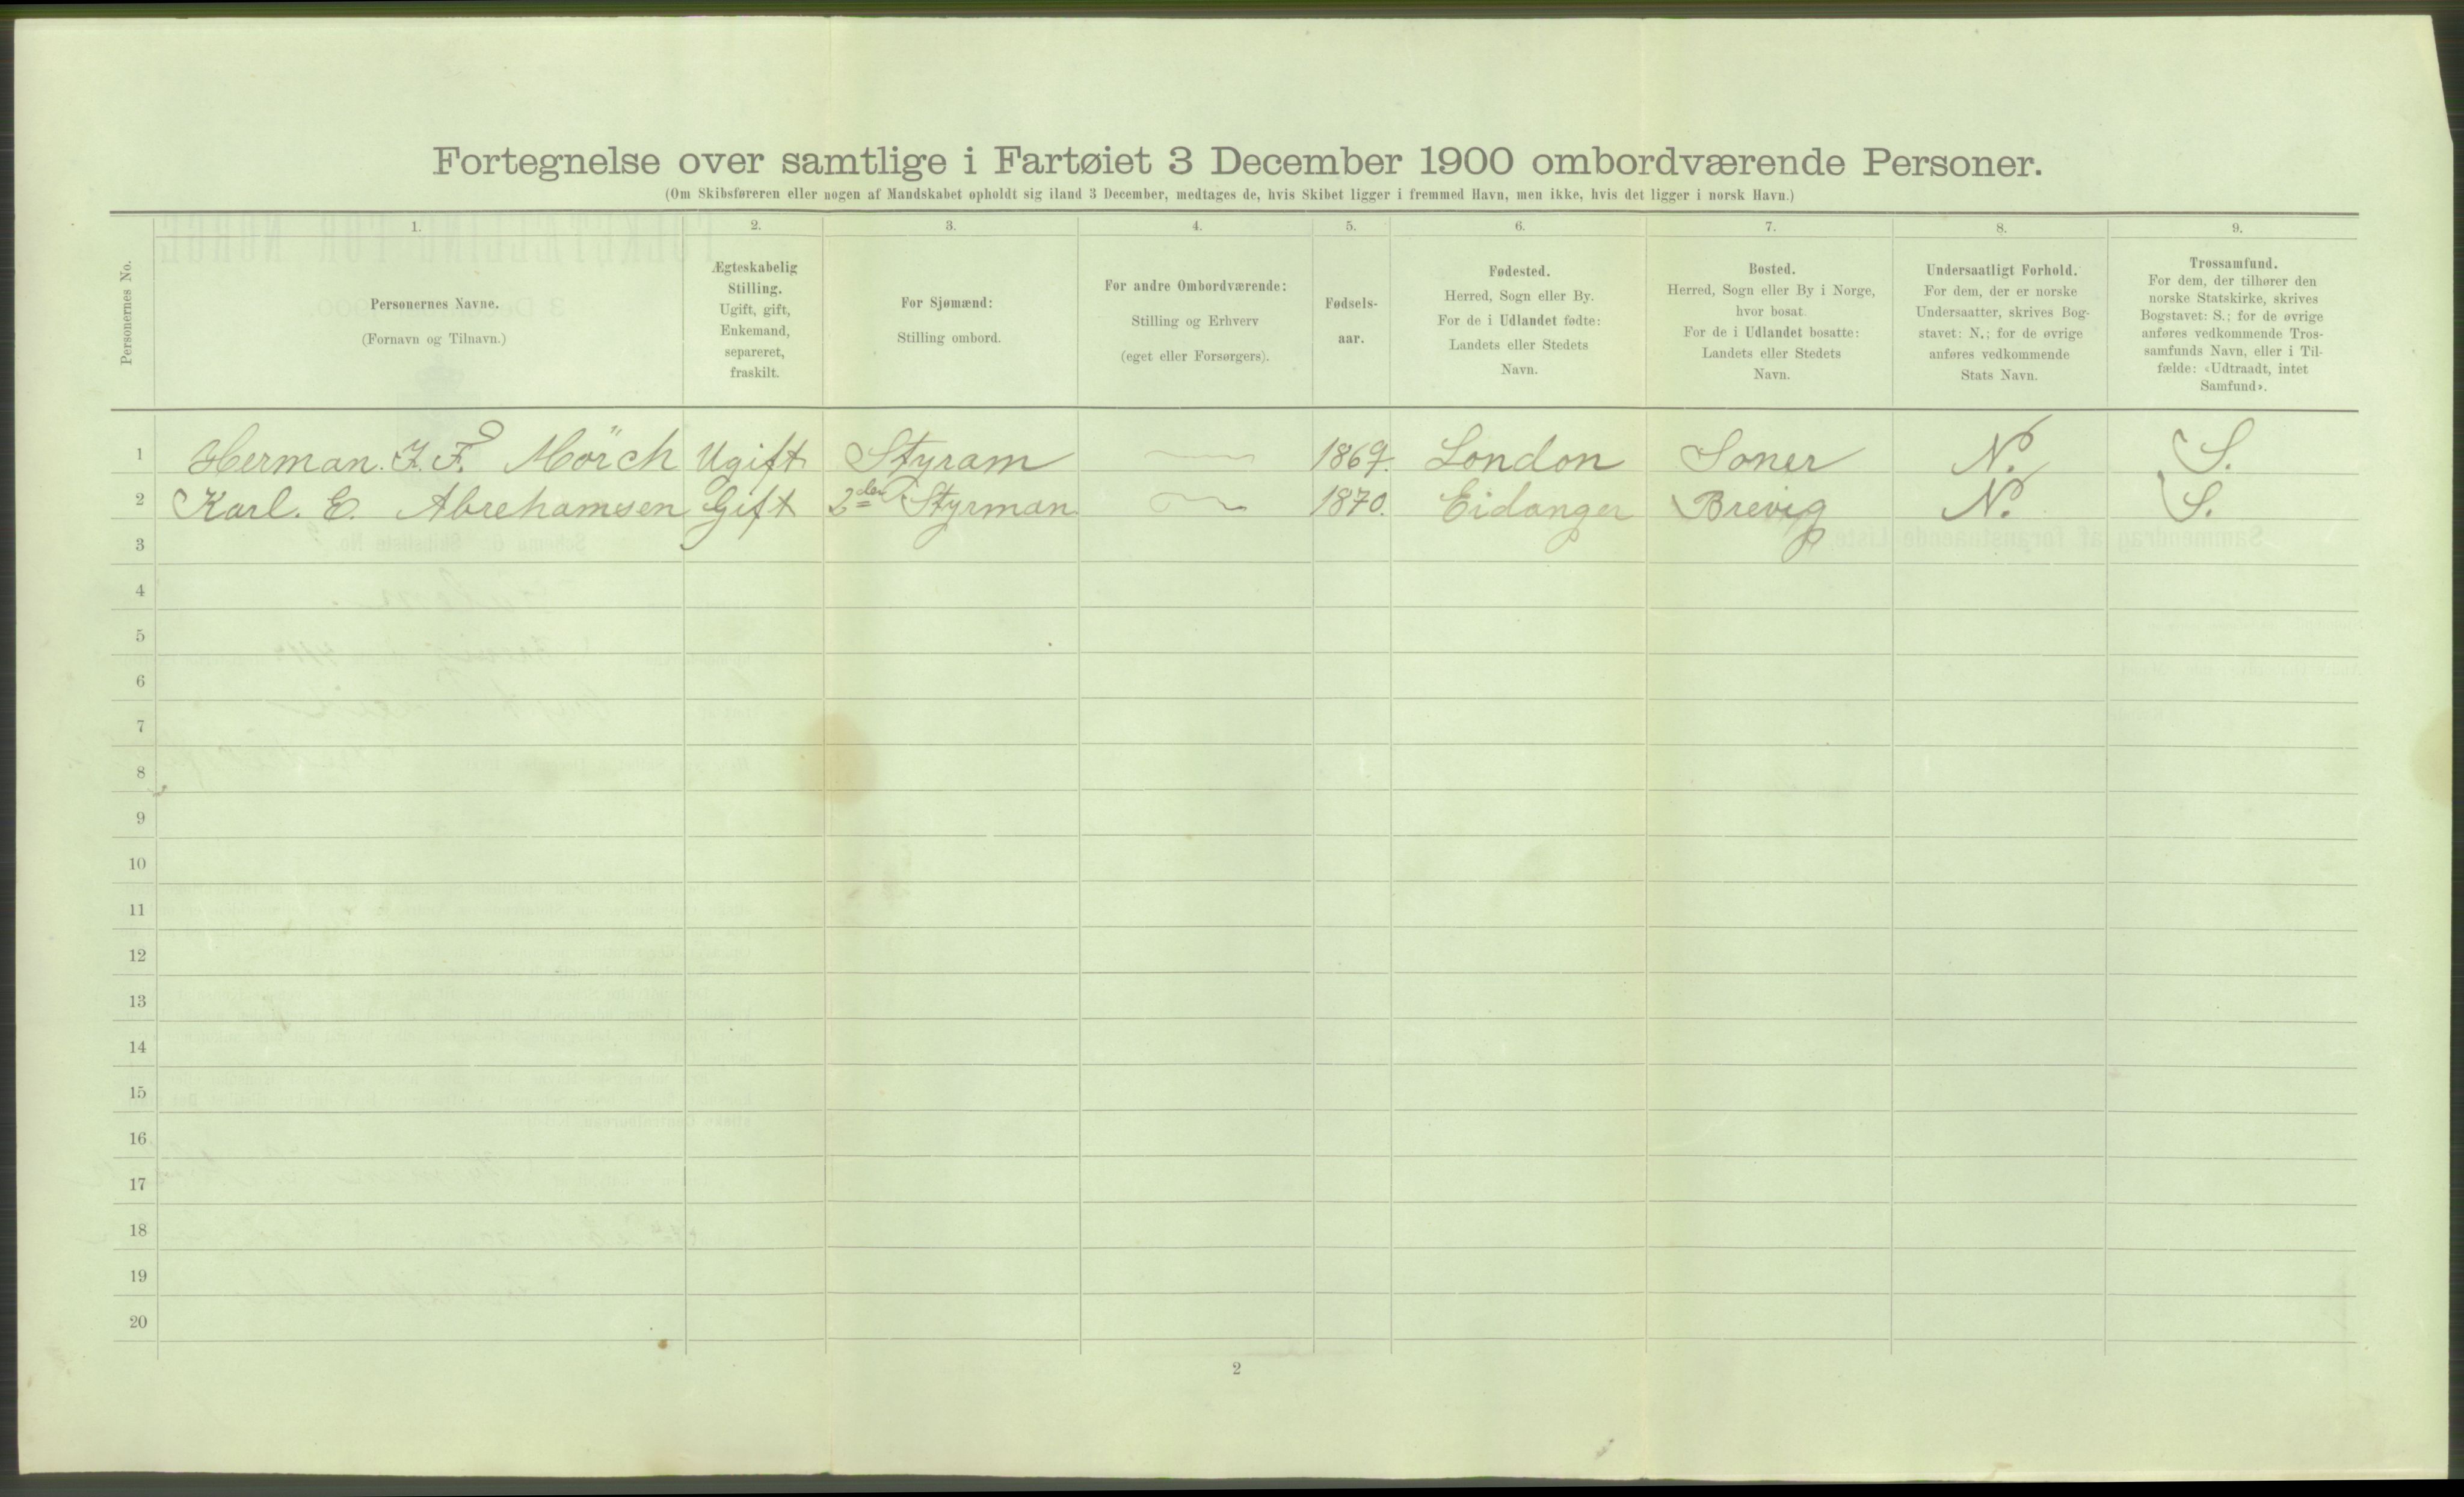 Fortegnelse over samtlige i Fartøiet 3 December 1900 ombordværende Personer.
(Om Skibsføreren eller nogen af Mandskabet opholdt sig iland 3 December, medtages de, hvis Skibet ligger i fremmed Havn, men ikke, hvis det ligger i norsk Havn.)
Personernes No.
1.
Personernes Navne.
(Fornavn og Tilnavn.)
2.
Ægteskabelig
Stilling.
Ugift, gift,
Enkemand,
separeret,
fraskilt.
3.
For Sjømænd:
Stilling ombord.
4.
For andre Ombordværende:
Stilling og Erhverv
(eget eller Forsørgers).
5.
Fødsels-
aar.
6.
Fødested.
Herred, Sogn eller By.
For de i Udlandet fødte:
Landets eller Stedets
Navn.
7.
Bosted.
Herred, Sogn eller By i Norge,
hvor bosat.
For de i Udlandet bosatte:
Landets eller Stedets
Navn.
8.
Undersaatligt Forhold.
For dem, der er norske
Undersaatter, skrives Bog-
stavet: N.; for de øvrige
anføres vedkommende
Stats Navn.
9.
Trossamfund.
For dem, der tilhører den
norske Statskirke, skrives
Bogstavet: S.; for de øvrige
anføres vedkommende Tros-
samfunds Navn, eller i Til-
fælde: «Udtraadt, intet
Samfund».
1 Herman. J. F. Mörch Ugift Styram 1869. London Soner N. S.
2 Karl. E. Abrehamsen Gift 2den Styrman 1870. Eidanger Brevig N. S.
3
4
5
6
7
8
9
10
11
12
13
14
15
16
17
18
19
20
2